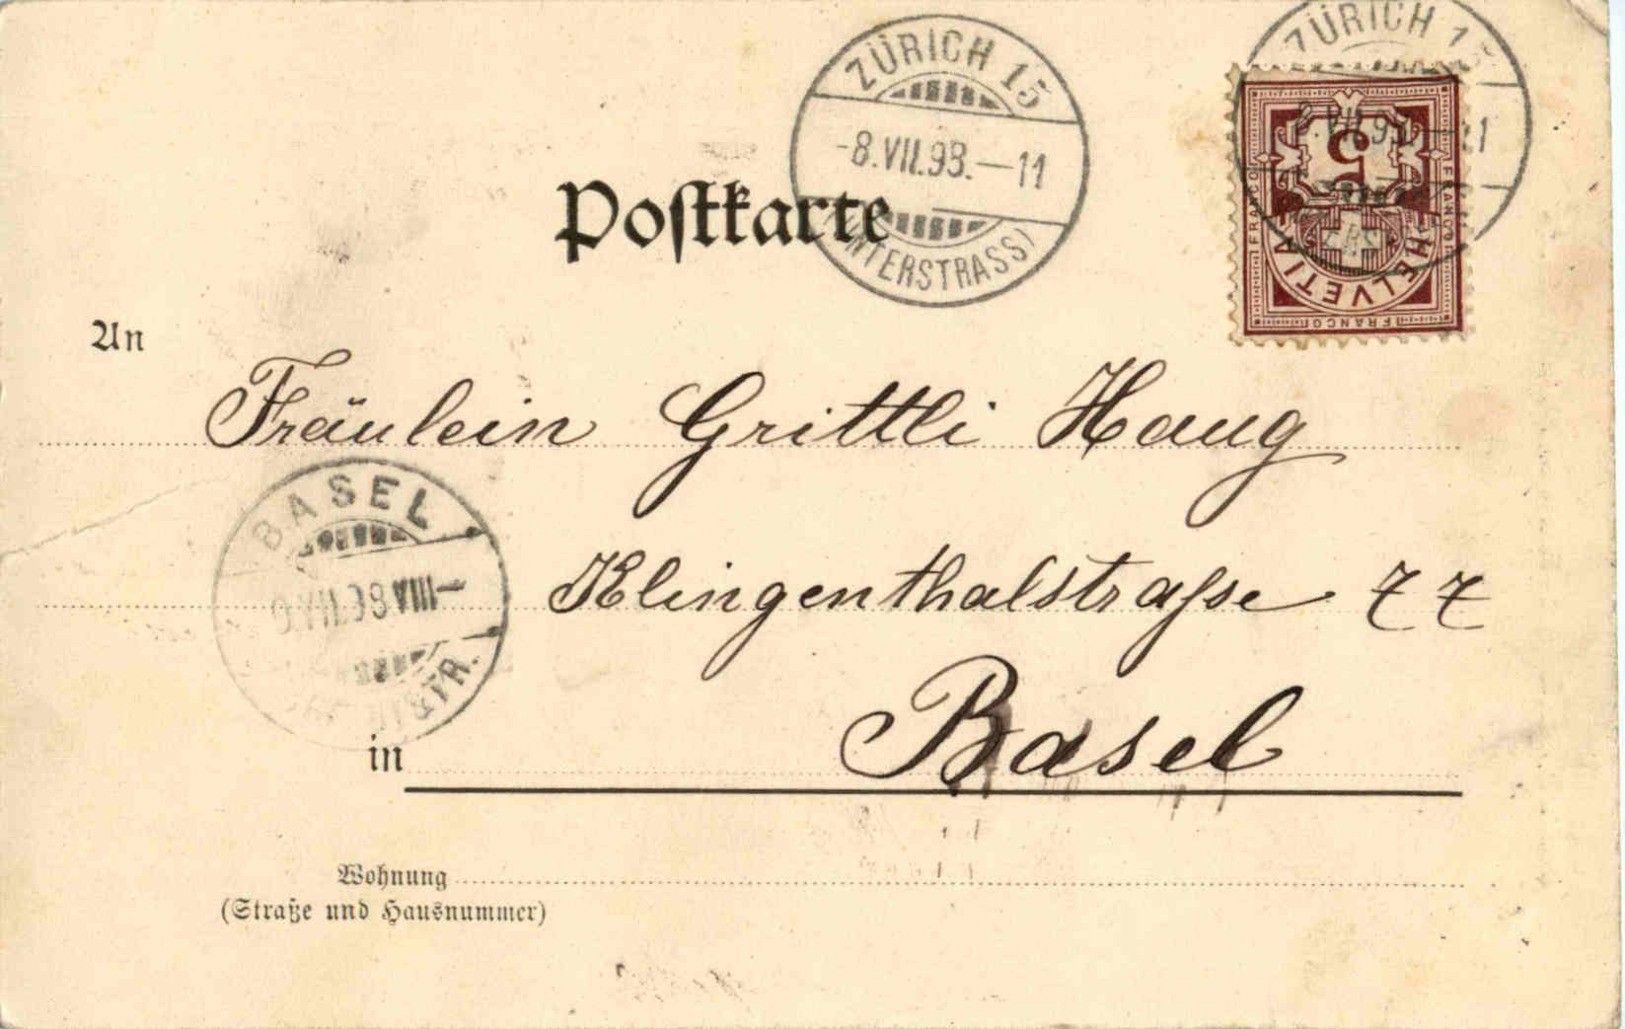 ZÜRICH 15
-8.VII.98.-11
(UNTERSTRASS)
ZÜRICH 15
FRANCO
5
HELVETIA
FRANCO
FRANCO
Postkarte
An
Fräulein Grittli Haug
BASEL
VIII-
Klingenthalstraße 77
in Basel
Wohnung
(Straße und Hausnummer)